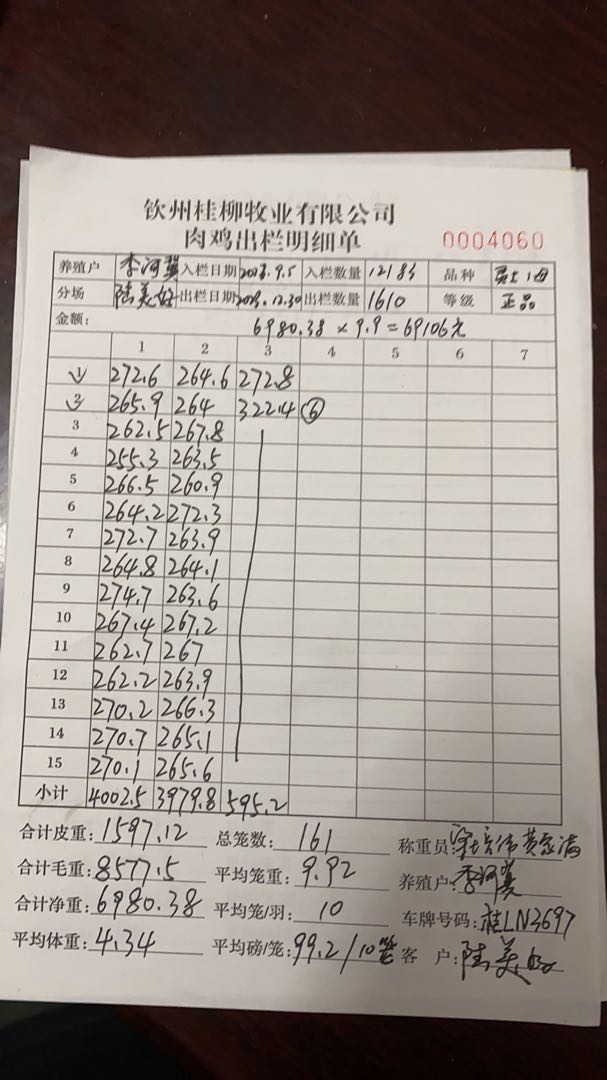 钦州桂柳牧业有限公司
肉鸡出栏明细单 0004060
养殖户 李河 入栏日期 9.5 入栏数量 12183 品种
分场 陆美好 出栏日期 12.30 出栏数量 1610 等级 正品
金额: 6980.38 × 9.9 = 69106元
1 2 3 4 5 6 7
1 272.6 264.6 272.8
2 265.9 264 322.4 ⑥
3 262.5 267.8
4 255.3 263.5
5 266.5 260.9
6 264.2 272.3
7 272.7 263.9
8 264.8 264.1
9 274.7 263.6
10 267.4 267.2
11 262.7 267
12 262.2 263.9
13 270.2 266.3
14 270.7 265.1
15 270.1 265.6
小计 4002.5 3979.8 595.2
合计皮重: 1597.12 总笼数: 161 称重员:
合计毛重: 8577.5 平均笼重: 9.92 养殖户: 李河
合计净重: 6980.38 平均笼/羽: 10 车牌号码: 桂LN3697
平均体重: 4.34 平均磅/笼: 99.2/10笼 客 户: 陆美好